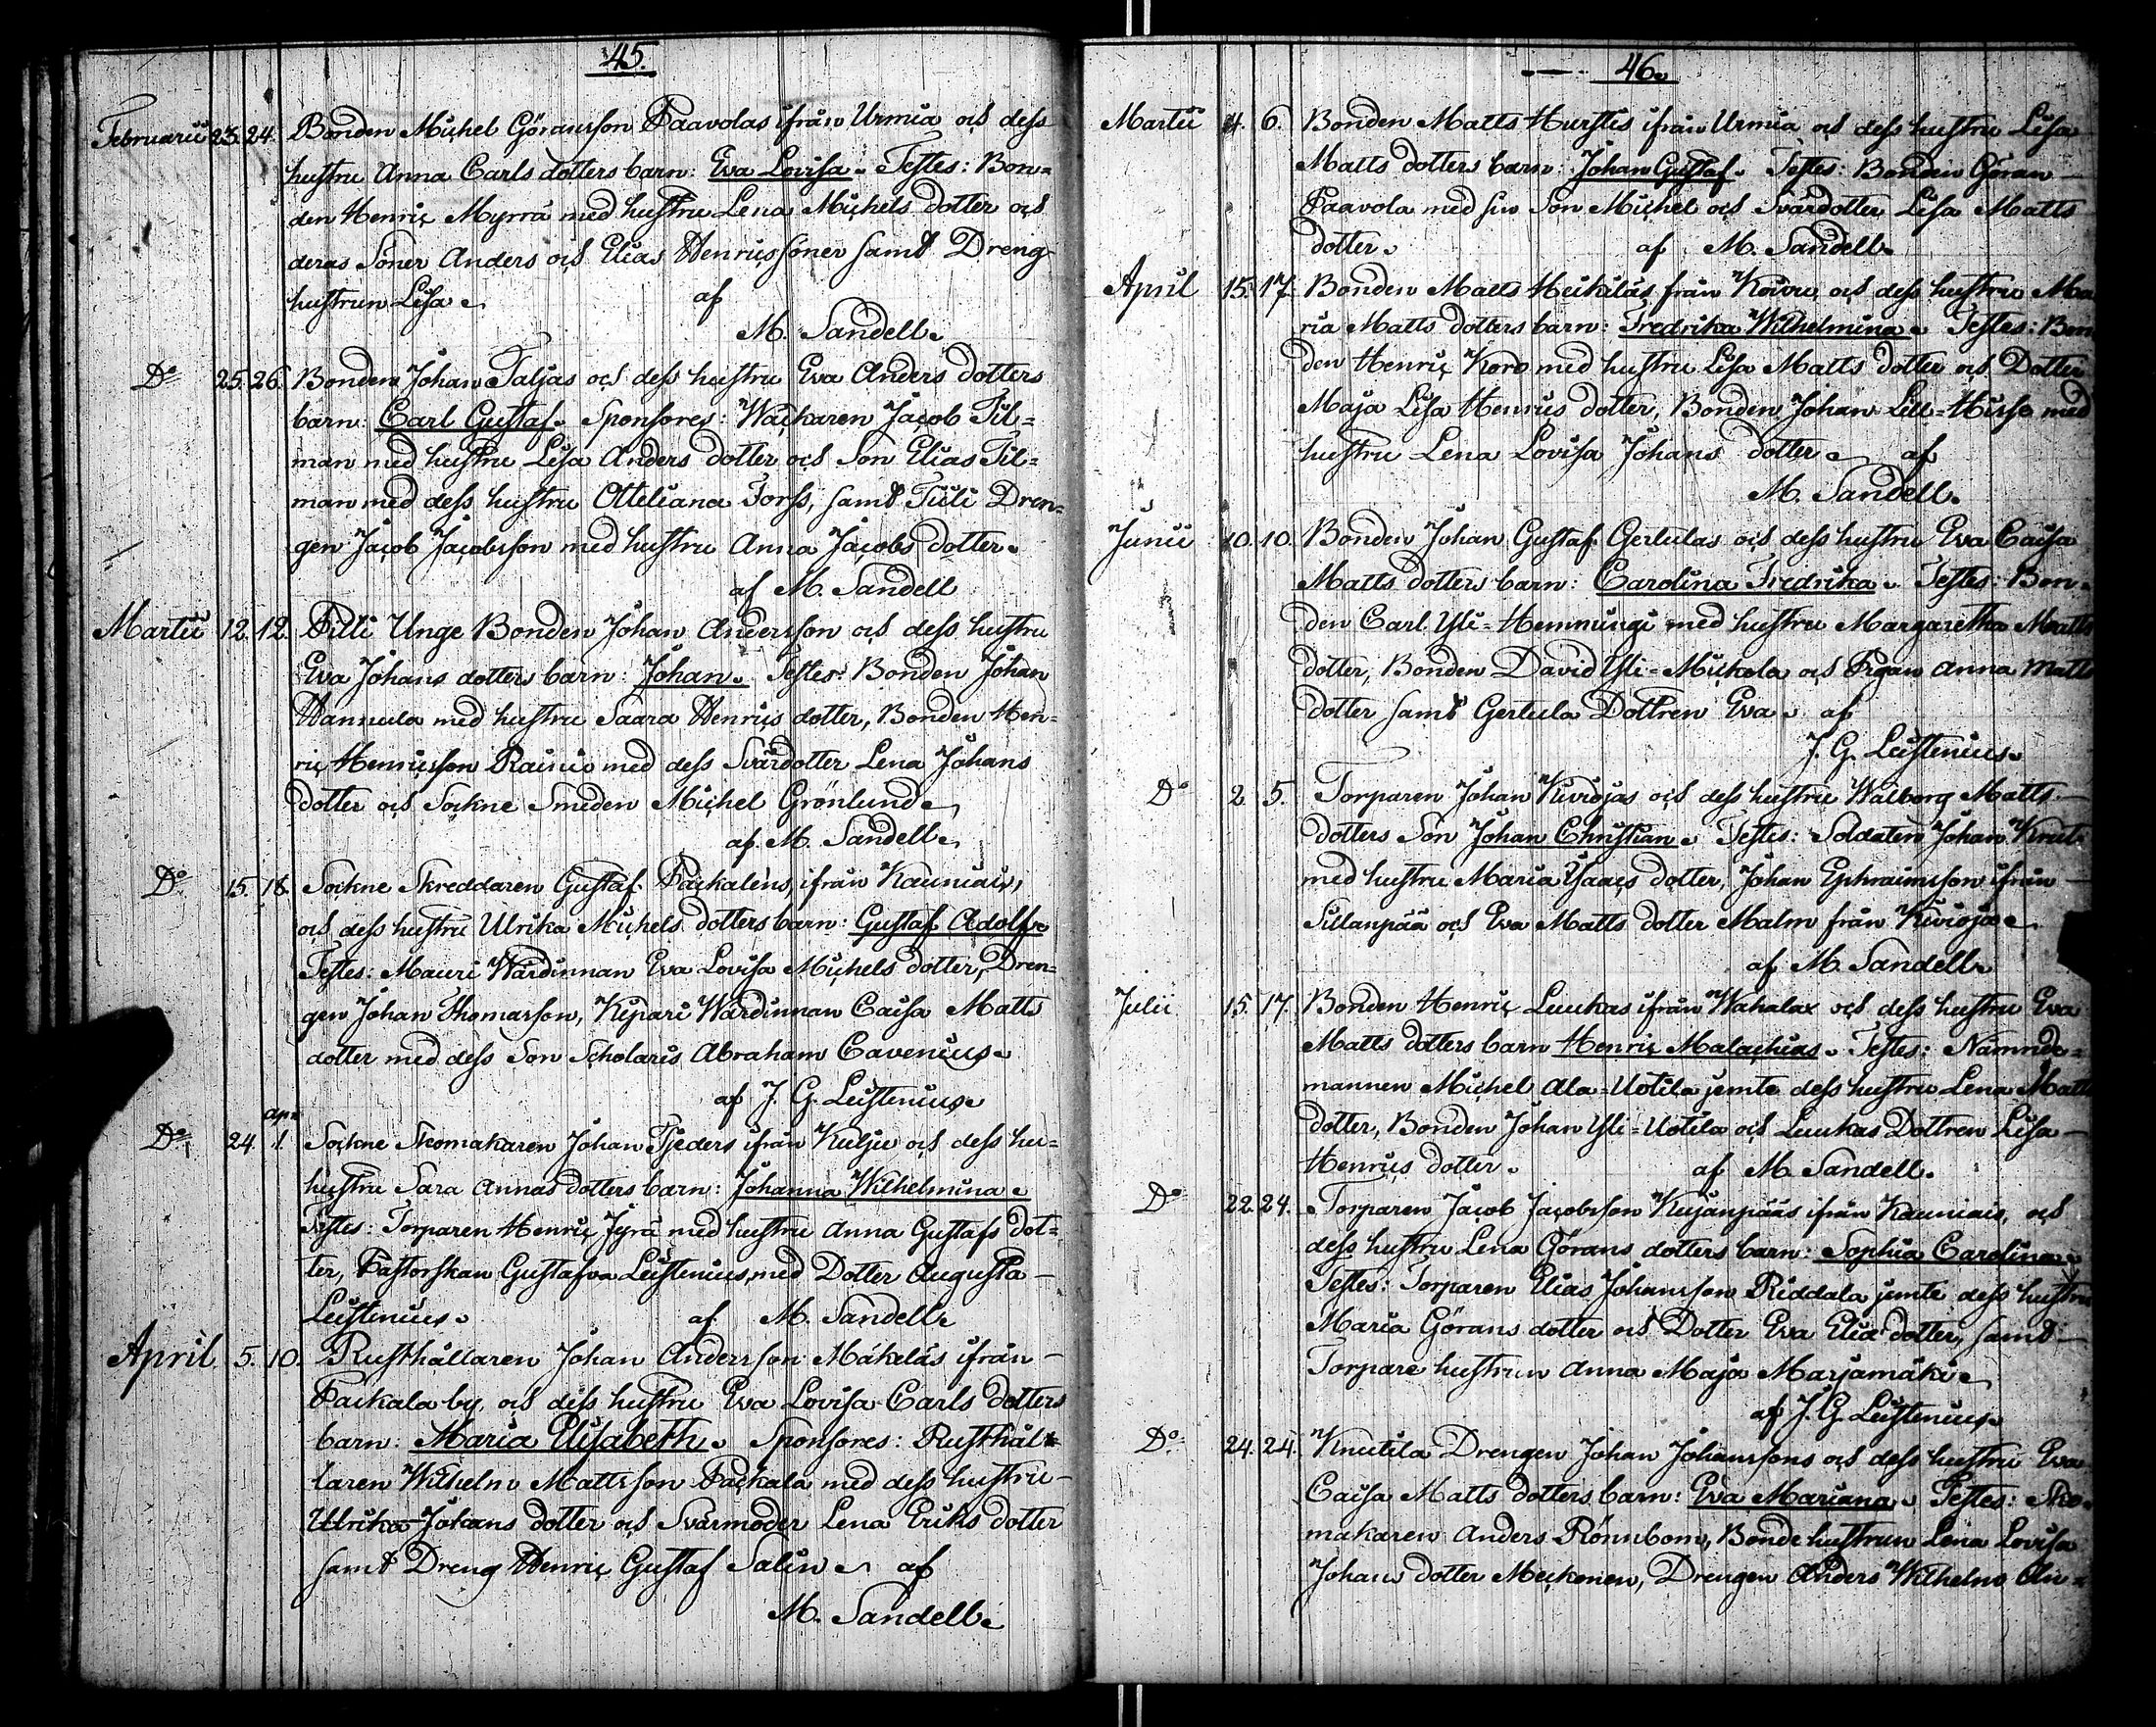 45.
Februarii 23. 24. Bonden Michel Göransson Paavolas ifrån Urmia och dess
hustru Anna Carls dotters barn: Eva Lovisa. Testes: Bon=
den Henric Myrrä med hustru Lena Michels dotter och
deras Söner Anders och Elias Henricssöner samt Dreng
hustrun Lisa. af
M. Sandell.
Do 25. 26. Bonden Johan Taljas och dess hustru Eva Anders dotters
barn: Carl Gustaf. Sponsores: Wäckaren Jacob Til=
man med hustru Lisa Anders dotter och Son Elias Til=
man med dess hustru Otteliana Forss, samt Drän=
gen Jacob Jacobsson med hustru Anna Jacobs dotter.
af M. Sandell
Martii 12. 12. Pilli Unge Bonden Johan Andersson och dess hustru
Eva Johans dotters barn: Johan. Testes: Bonden Johan
Hannula med hustru Saara Henrics dotter, Bonden Hen=
ric Henricsson Rainio med dess Svärdotter Lena Johans
dotter och Sockne Smeden Michel Grönlund.
af M. Sandell.
Do 15. 18. Sockne Skreddaren Gustaf Packaléns ifrån Kauniais,
och dess hustru Ulrika Michels dotters barn: Gustaf Adolf.
Testes: Mauri Wärdinnan Eva Lovisa Michels dotter, Dren=
gen Johan Thomasson, Kipari Wärdinnan Caisa Matts
dotter med dess Son Scholaris Abraham Cavenius.
af J. G. Leistenius.
Do 24. apr. 1. Sockne Skomakaren Johan Tjeders ifrån Kulju och dess hu=
hustru Sara Annas dotters barn: Johanna Wilhelmina.
Testes: Torparen Henric Jyrä med hustru Anna Gustafs dot=
ter, Pastorskan Gustafva Leistenius, med Dotter Augusta
Leistenius. af M. Sandell.
April 5. 10. Rusthållaren Johan Andersson Mäkeläs ifrån
Packala by, och dess hustru Eva Lovisa Carls dotters
barn: Maria Elisabeth. Sponsores: Rusthål=
laren Wilhelm Mattsson Packala med dess hustru
Ulrika Johans dotter och Svärmoder Lena Eriks dotter
samt Dreng Henric Gustaf Salin. af
M. Sandell.
46.
Martii 4. 6. Bonden Matts Hurstis ifrån Urmia och dess hustru Lisa
Matts dotters barn: Johan Gustaf. Testes: Bonden Göran
Paavola med sin Son Michel och Svärdotter Lisa Matts
dotter. af M. Sandell.
April 15. 17. Bonden Matts Heikiläs från Koivu, och dess hustru Ma
ria Matts dotters barn: Fredrika Wilhelmina. Testes: Bon
den Henric Koro med hustru Lisa Matts dotter och Dotter
Maja Lisa Henrics dotter, Bonden Johan Lill=Hirso med
hustru Lena Lovisa Johans dotter. af
M. Sandell.
Junii 10. 10. Bonden Johan Gustaf Gertulas och dess hustru Eva Caisa
Matts dotters barn: Carolina Fredrika. Testes: Bon=
den Carl Yli=Hemmingi med hustru Margaretha Matts
dotter, Bonden David Yli=Mickola och Pigan Anna Matts
dotter samt Gertula Dottren Eva. af
J. G. Leistenius.
Do 2 5. Torparen Johan Kiviojas och dess hustru Walborg Matts
dotters Son Johan Christian. Testes: Soldaten Johan Knut
med hustru Maria Isaacs dotter, Johan Ephraimsson ifrån
Sillanpää och Eva Matts dotter Malm från Kivioja.
af M. Sandell.
Julii 15. 17. Bonden Henric Luukas ifrån Wahalax och dess hustru Eva
Matts dotters barn Henric Malachias. Testes: Nämnde=
mannen Michel Ala=Uotila jemte dess hustru Lena Matts
dotter, Bonden Johan Yli=Uotila och Luukas Dottren Lisa
Henrics dotter. af M. Sandell.
Do 22. 24. Torparen Jacob Jacobsson Kujanpääs ifrån Kauniais, och
dess hustru Lena Görans dotters barn: Sophia Carolina.
Testes: Torparen Elias Johansson Riddala jemte dess hustru
Maria Görans dotter och Dotter Eva Eliä dotter, samt
Torpare hustrun Anna Maja Marjamäki.
af J. G. Leistenius.
Do 24. 24. Knutila Drengen Johan Johanssons och dess hustru Eva
Caisa Matts dotters barn: Eva Mariana. Testes: Sko=
makaren Anders Rönnbom, Bonde hustrun Lena Lovisa
Johans dotter Meckonen, Drengen Anders Wilhelm An=